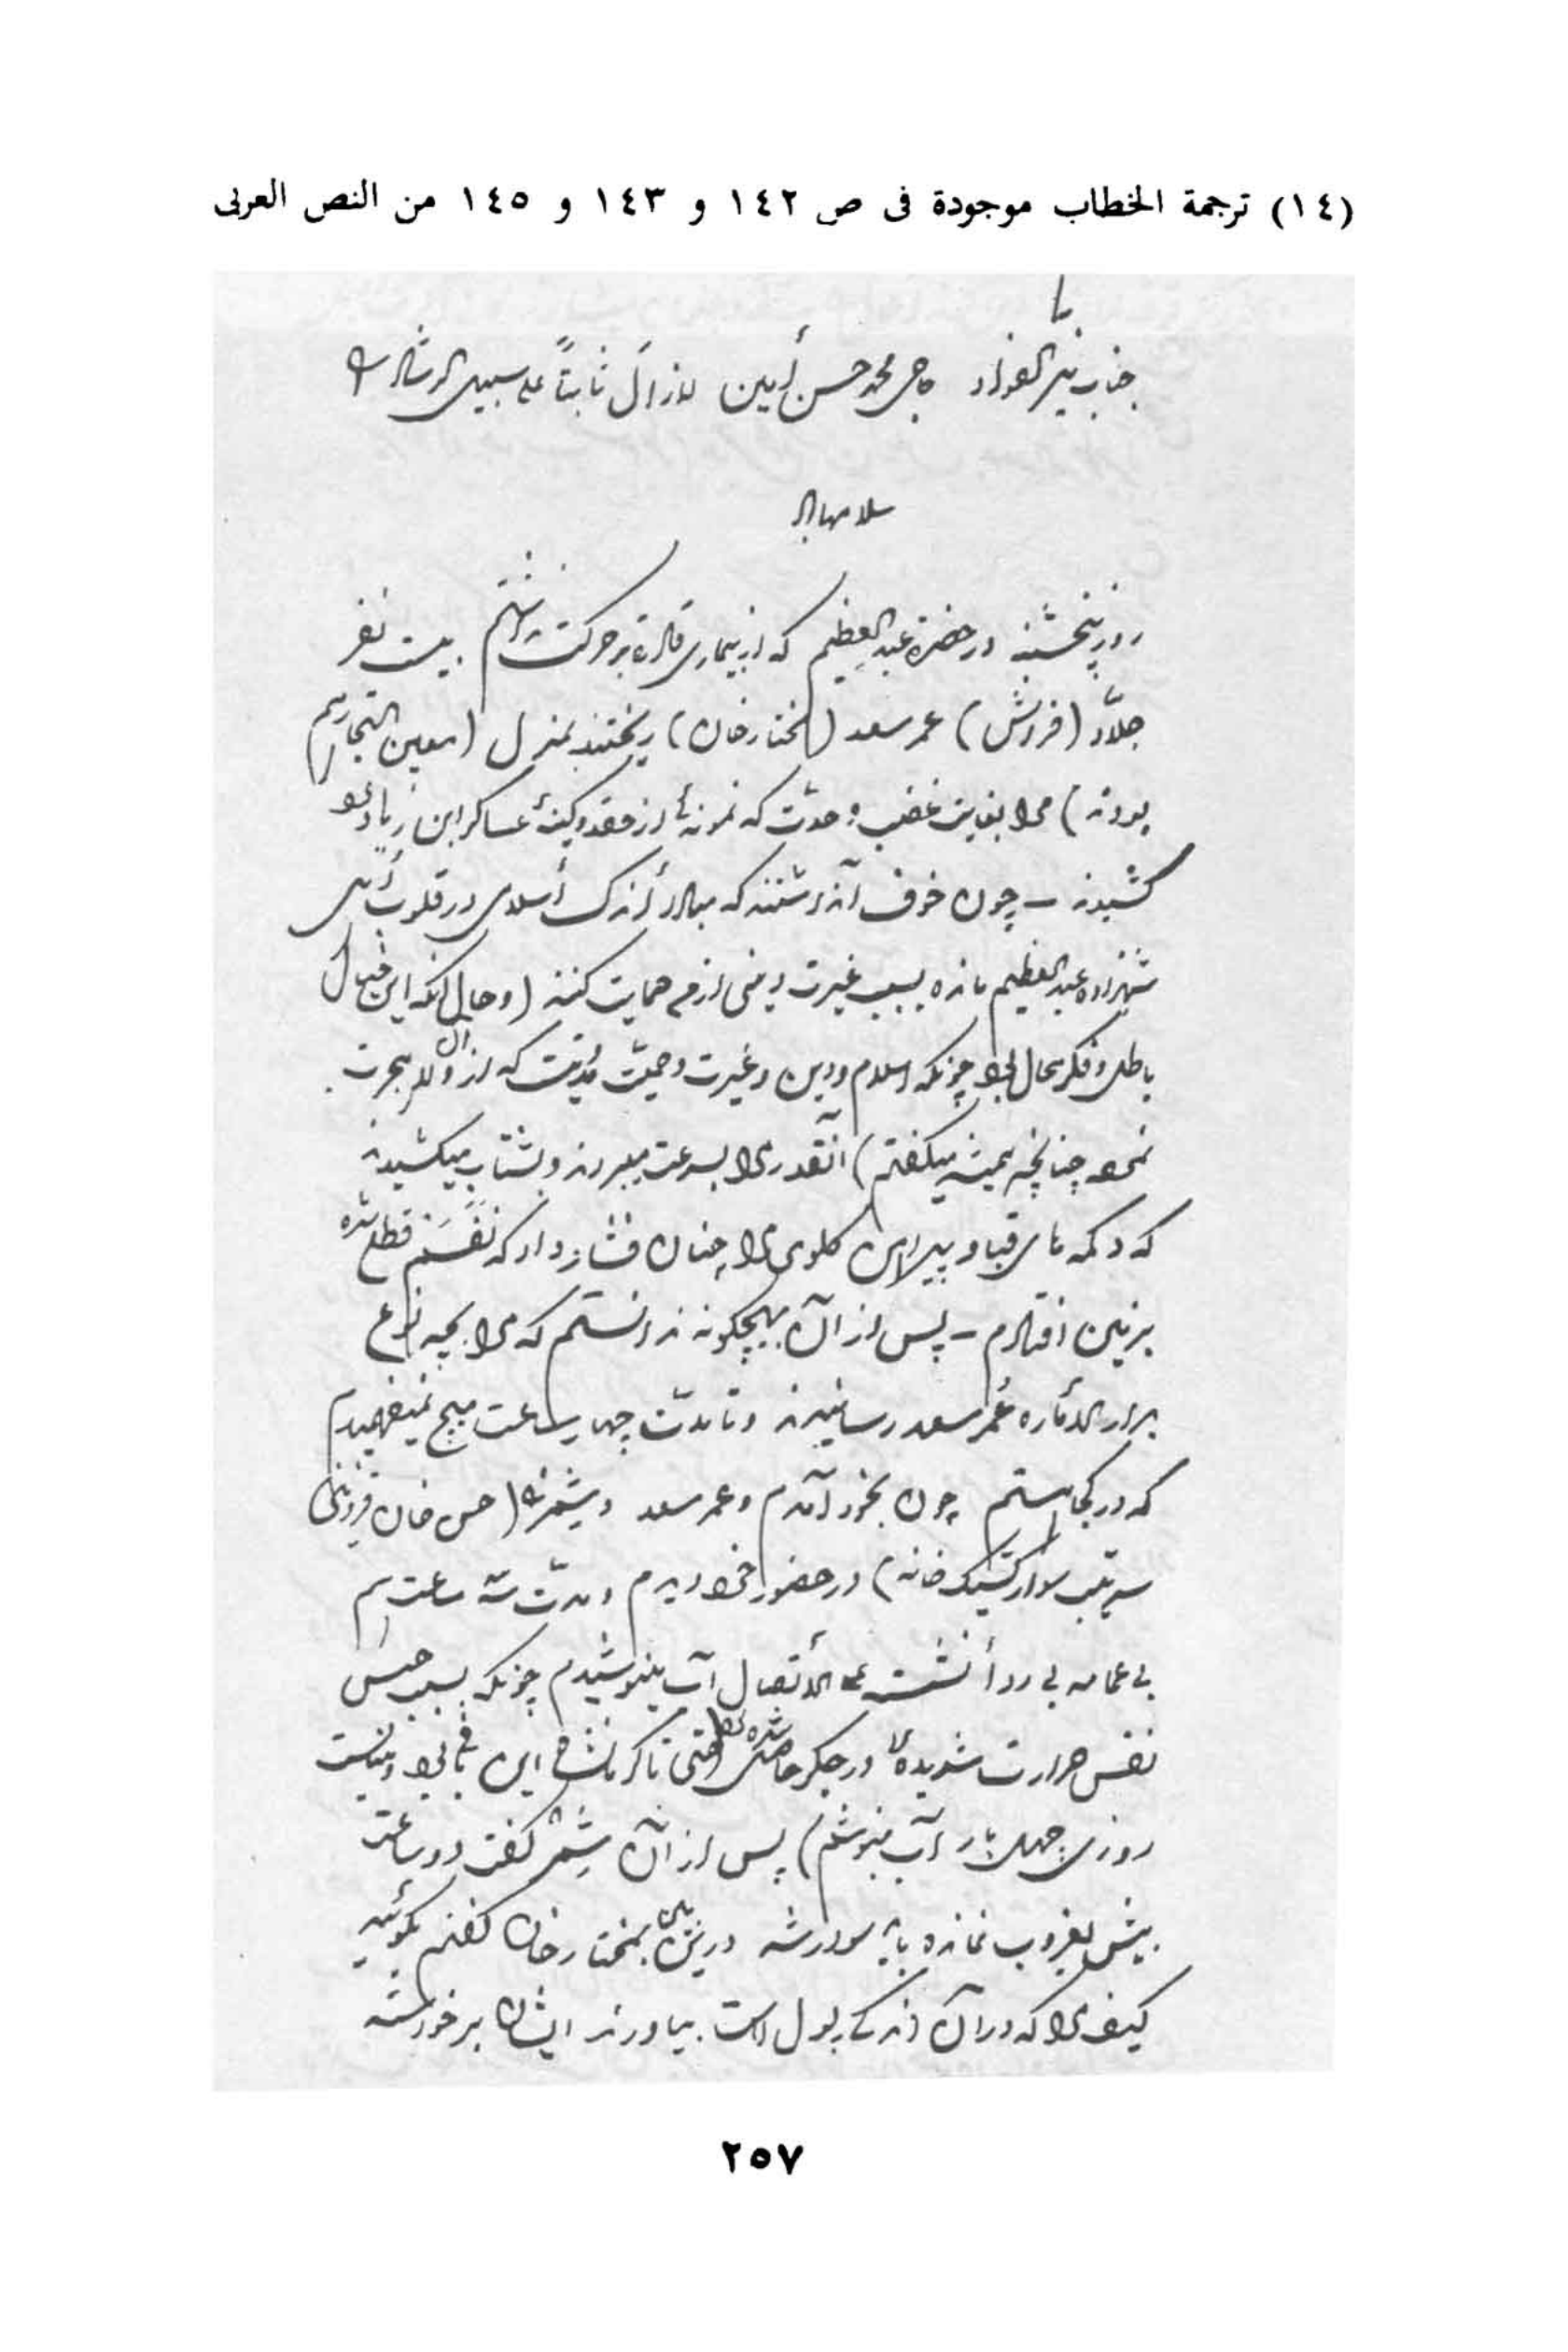 (١٤) ترجمة الخطاب موجودة فى ص ١٤٢ و ١٤٣ و ١٤٥ من النص العربى
جناب نیّر الفؤاد حاجی محمد حسن أمین لازال ثابتاً على سبیل الرشاد
سلامها
روز پنجشنبه در حضرة عبدالعظیم که از بیماری قادر بر حرکت نبودم بیست نفر
جلاّد (فرّاش) عمر سعد (مختارخان) ریختند بمنزل (معین التجار هم
بودند) مرا بغایت غضب و حدّت که نمونهٔ از حقد و کینهٔ عساکر ابن زیاد
کشیدند – چون خوف آن داشتند که مبادا أندک أسلامی در قلوب أهالی
شهزاده عبدالعظیم مانده بسبب غیرت دینی از من حمایت کنند (و حال آنکه این خیال
باطل و فکر محال بود چونکه اسلام و دین و غیرت و حمیّت مدّتیست که از آن
چنانچه همیشه میگفتم) آنقدر مرا بسرعت میبردند و بشتاب میکشیدند
که دکمه های قبا و پیراهن گلوی مرا چنان فشار داد که نَفَسَم قطع شده
بزمین افتادم – پس از آن هیچگونه ندانستم که مرا بچه نوع
بدار الأماره عُمر سعد رسانیدند و تا مدّت چهار ساعت هیچ نمیفهمیدم
که در کجا هستم چون بخود آمدم عمر سعد و شمر را (حسن خان قزوینی
سرتیپ سوار کشیک خانه) در حضور خود دیدم و مدّت سه ساعت هم
بی عمامه بی ردأ نشسته على الأتصال آب مینوشیدم چونکه بسبب حبس
نفس حرارت شدیدهٔ در جگر حاصل شده بود (حتی تا کرمانشاه این باقی بود و میبایست
روزی چهل بار آب بنوشم) پس از آن شمر گفت دو ساعت
بیش بغروب نمانده باید سوار شد در این بین بمختار خان گفتم بگوئید
کیف مرا که در آن اندکی پول است بیاورند ایشان برخواسته
٢٥٧